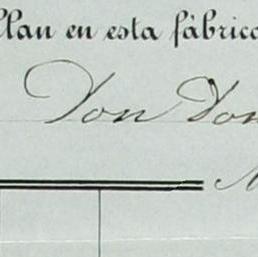 llan en esta fábrica
Don Don